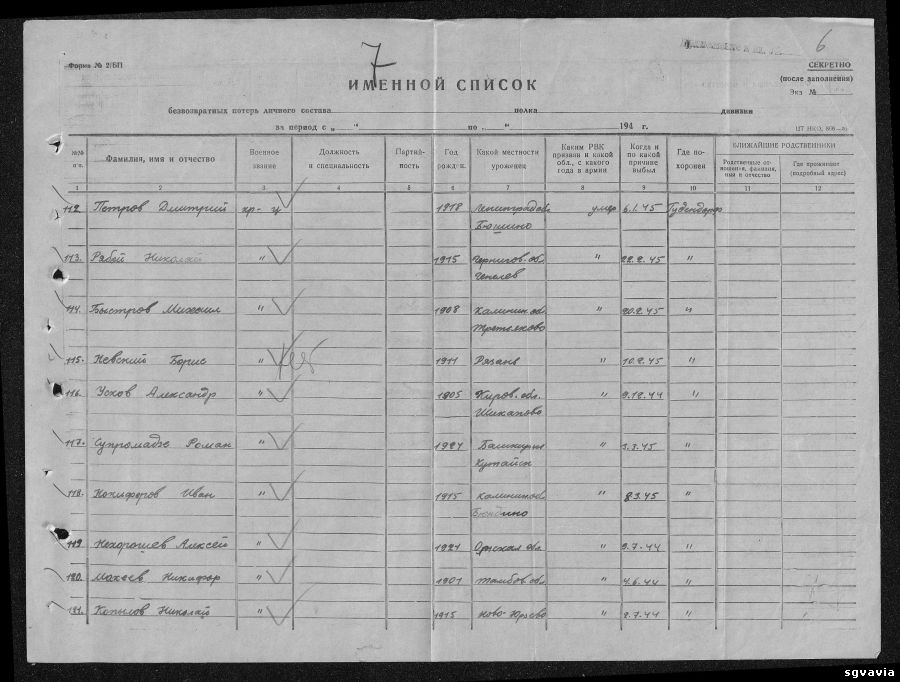 7
6
Форма № 2/БП
СЕКРЕТНО
(после заполнения)
Экз №
ИМЕННОЙ СПИСОК
безвозвратных потерь личного состава полка дивизии
за период с „ “ по „ “ 194 г.
ЦТ НКО,
№№ п п. Фамилия, имя и отчество Военное звание Должность и специальность Партий-ность Год рожден. Какой местности уроженец Каким РВК призван и какой обл., с какого года в армии Когда и по какой причине выбыл Где по-хоронен БЛИЖАЙШИЕ РОДСТВЕННИКИ
Родственные от-ношения, фамилия, имя и отчество Где проживают (подробный адрес)
1 2 3 4 5 6 7 8 9 10 11 12
112 Петров Дмитрий кр-ц 1918 Ленинград.обл. умер 6.1.45 Гудендорф
Бюшино
113. Рябой Николай " 1915 Чернигов.об. " 22.2.45 "
114. Быстров Михаил " 1908 Калинин.об. " 20.2.45 "
Третьяково
115. Невский Борис " 1911 Рязань " 10.2.45 "
116. Усков Александр " 1905 Киров.обл. " 9.12.44 "
Шикалово
117. Роман " 1921 " 3.3.45 "
Кутайск
118. Никифоров Иван " 1915 Калинин.об. " 8.3.45 "
119 Нехорошев Алексей " 1921 Орская обл. " 9.7.44 "
120. Макеев Никифор " 1901 Тамбов.обл " 4.6.44 "
121. Копылов Николай " 1915 " 2.7.44 "
sgvavia